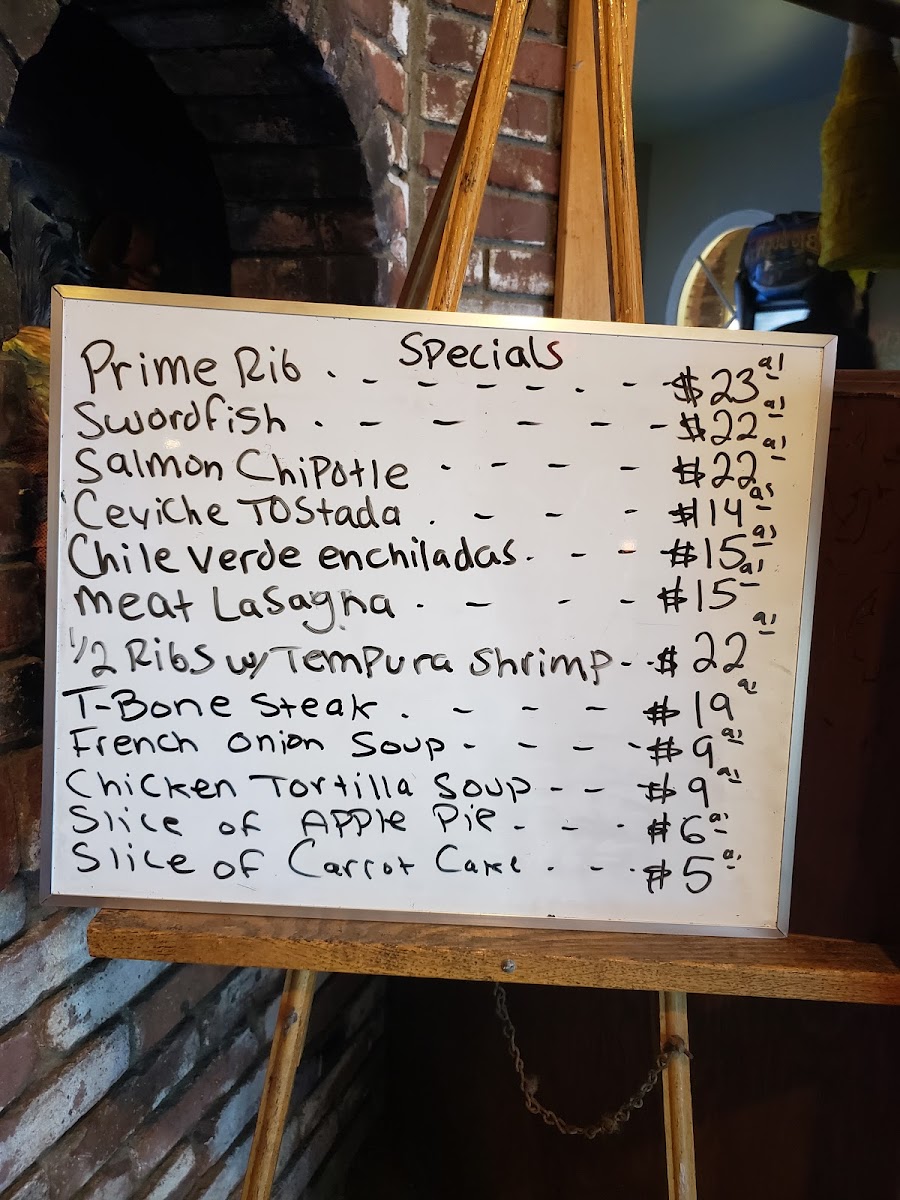 Specials
Prime Rib . - - - - . - - $23 95
Swordfish . - - - - - $22 95
Salmon Chipotle - - - - $22 95
Ceviche Tostada . - - - $14 95
Chile verde enchiladas. - - $15 95
meat Lasagna . - - - $15 95
1/2 Ribs w/ Tempura shrimp - - $22 95
T-Bone steak . - - - $19 95
French onion Soup - - - - $9 95
Chicken Tortilla Soup - - - $9 95
Slice of Apple Pie - - - $6 95
Slice of Carrot Cake . - - $5 95